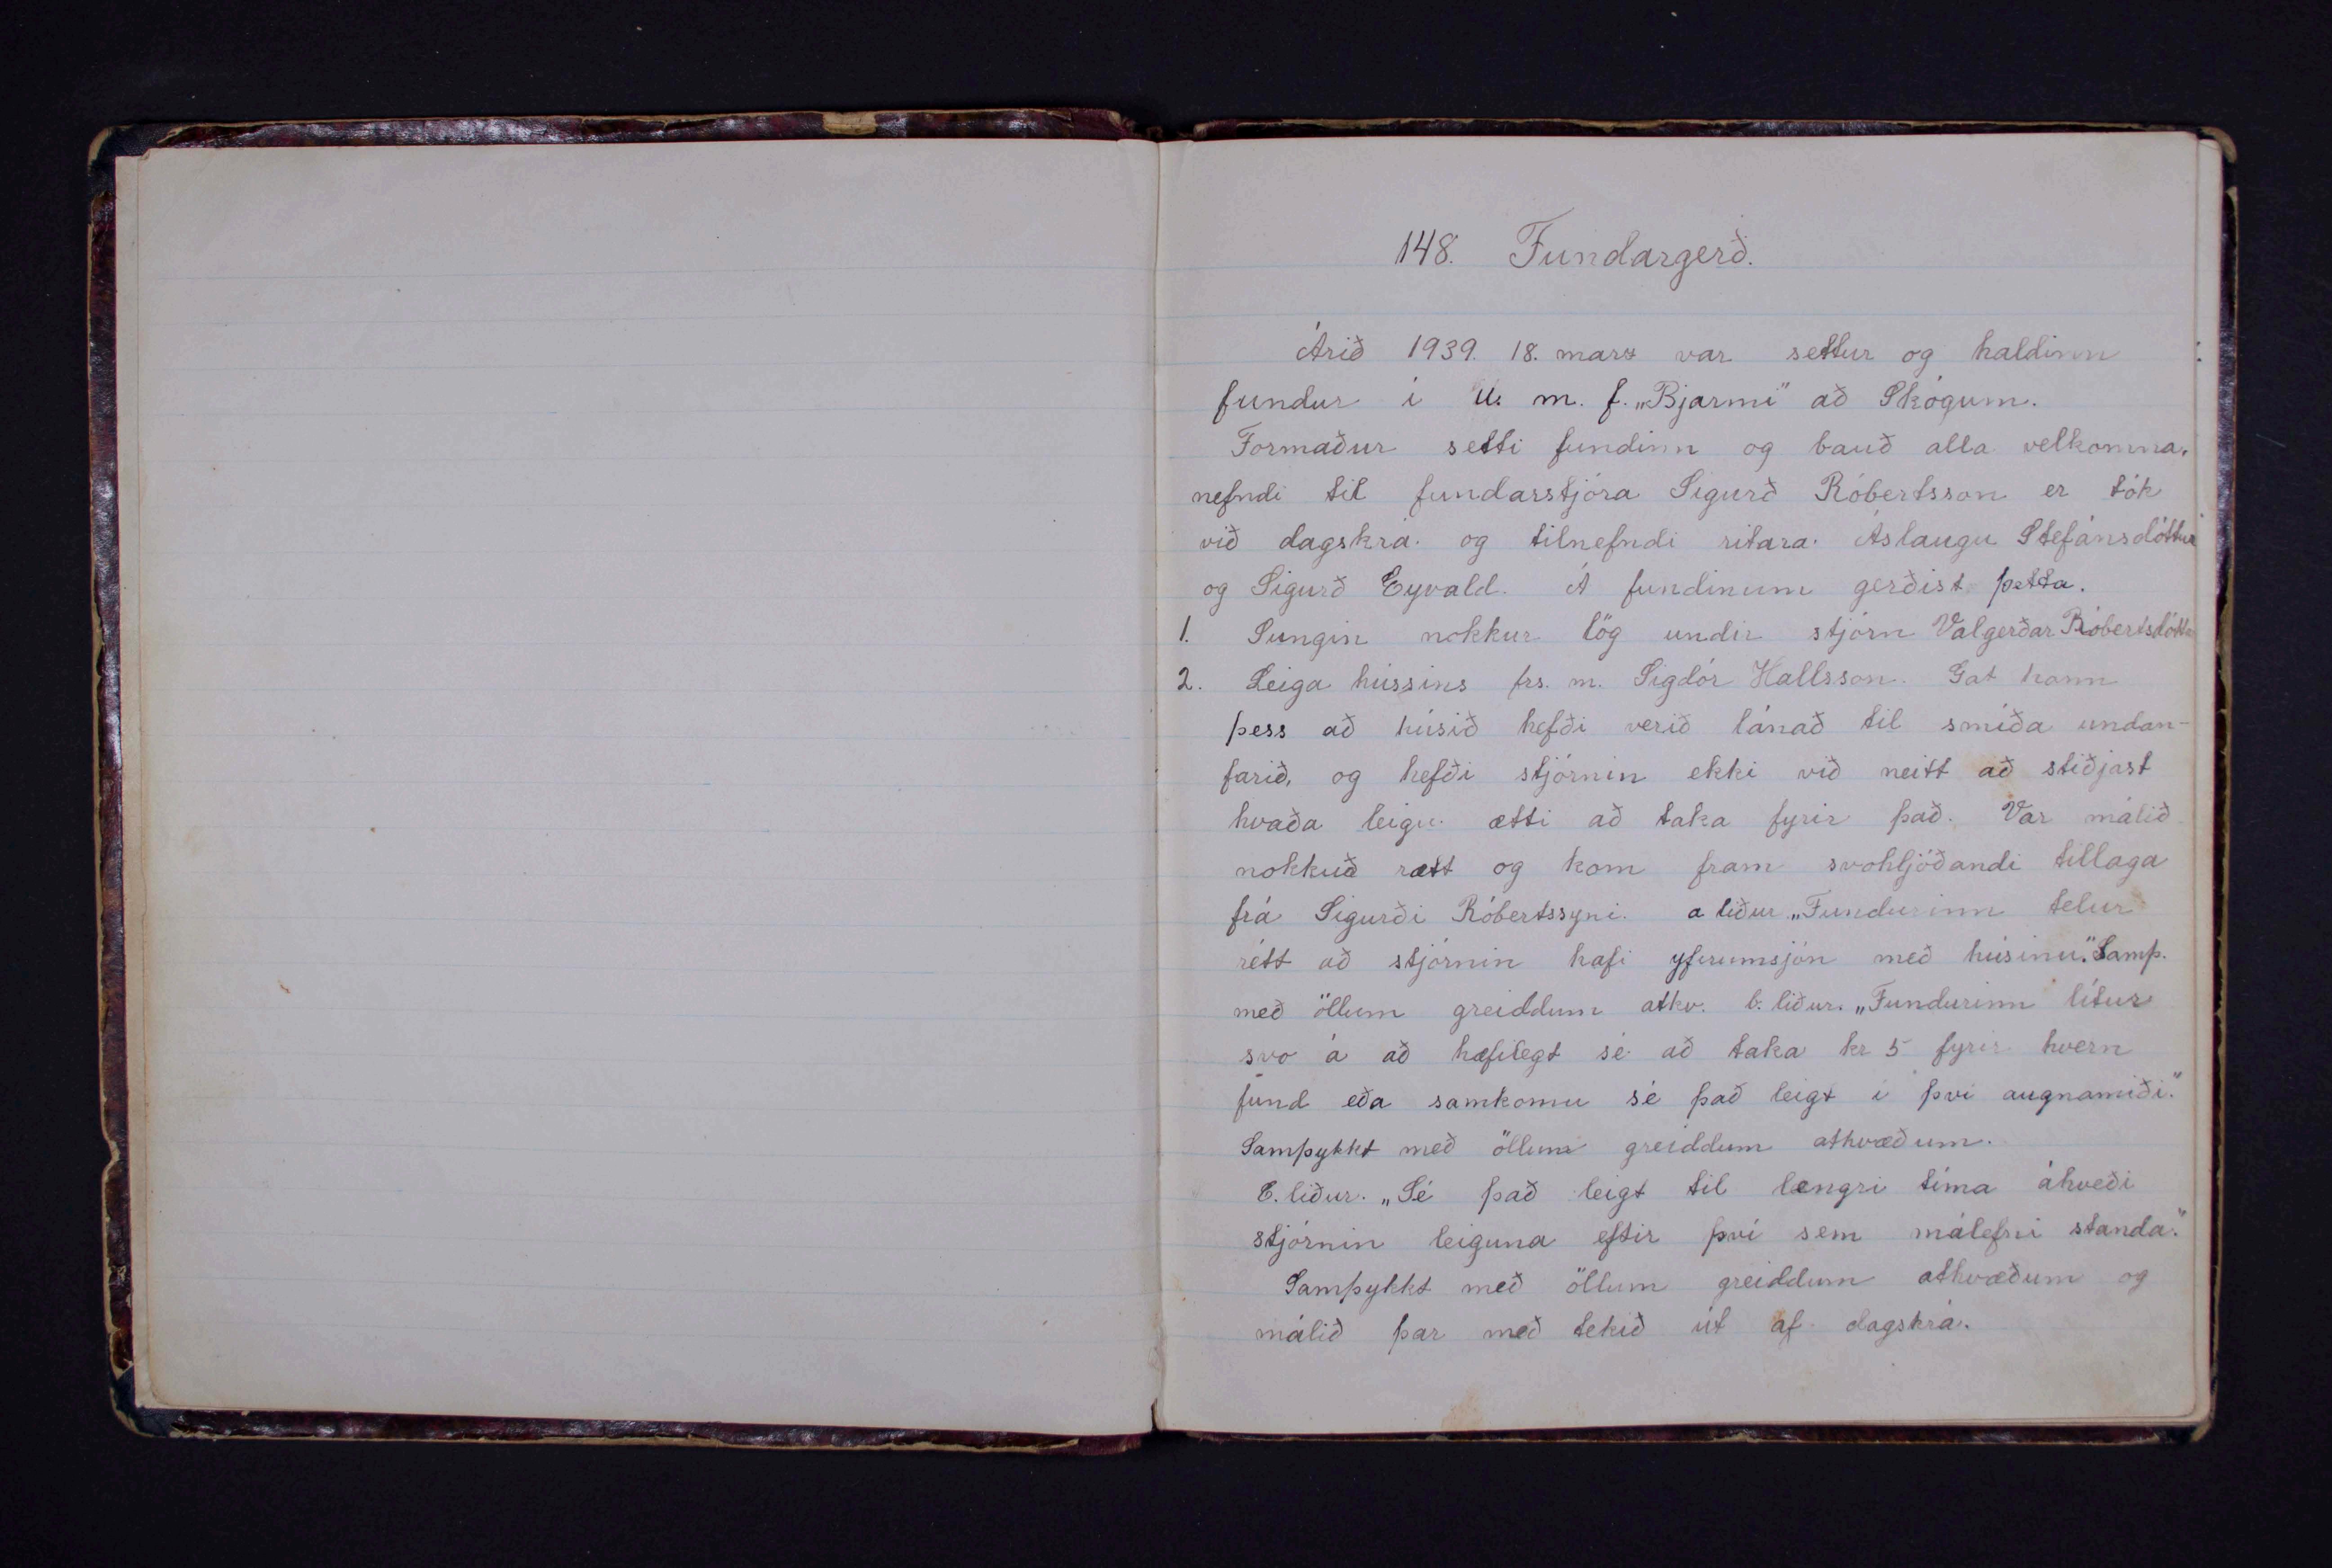 148. Fundargerð.
Árið 1939. 18. marz var settur og haldinn
fundur í U. m. f. „Bjarmi" að Skógum.
Formaður setti fundinn og bauð alla velkomna.
nefndi til fundarstjóra Sigurð Róbertsson er tók
við dagskrá. og tilnefndi ritara. Áslaugu Stefánsdóttur
og Sigurð Eyvald. Á fundinum gerðist þetta.
1. Sungin nokkur lög undir stjórn Valgerðar Róbertsdóttur
2. Leiga hússins frs. m. Sigdór Hallsson. Gat hann
þess að húsið hefði verið lánað til smíða undan-
farið, og hefði stjórnin ekki við neitt að stiðjast
hvaða leigu ætti að taka fyrir það. Var málið
nokkuð rætt og kom fram svohljóðandi tillaga
frá Sigurði Róbertssyni. a liður „Fundurinn telur
rétt að stjórnin hafi yfirumsjón með húsinu". Samþ.
með öllum greiddum atkv. b. liður. „Fundurinn lítur
svo á að hæfilegt sé að taka kr 5 fyrir hvern
fund eða samkomu sé það leigt í því augnamiði."
Samþykkt með öllum greiddum atkvæðum.
C. liður. „Sé það leigt til lengri tíma ákveði
stjórnin leiguna eftir því sem málefni standa."
Samþykkt með öllum greiddum atkvæðum og
málið þar með tekið út af dagskrá.